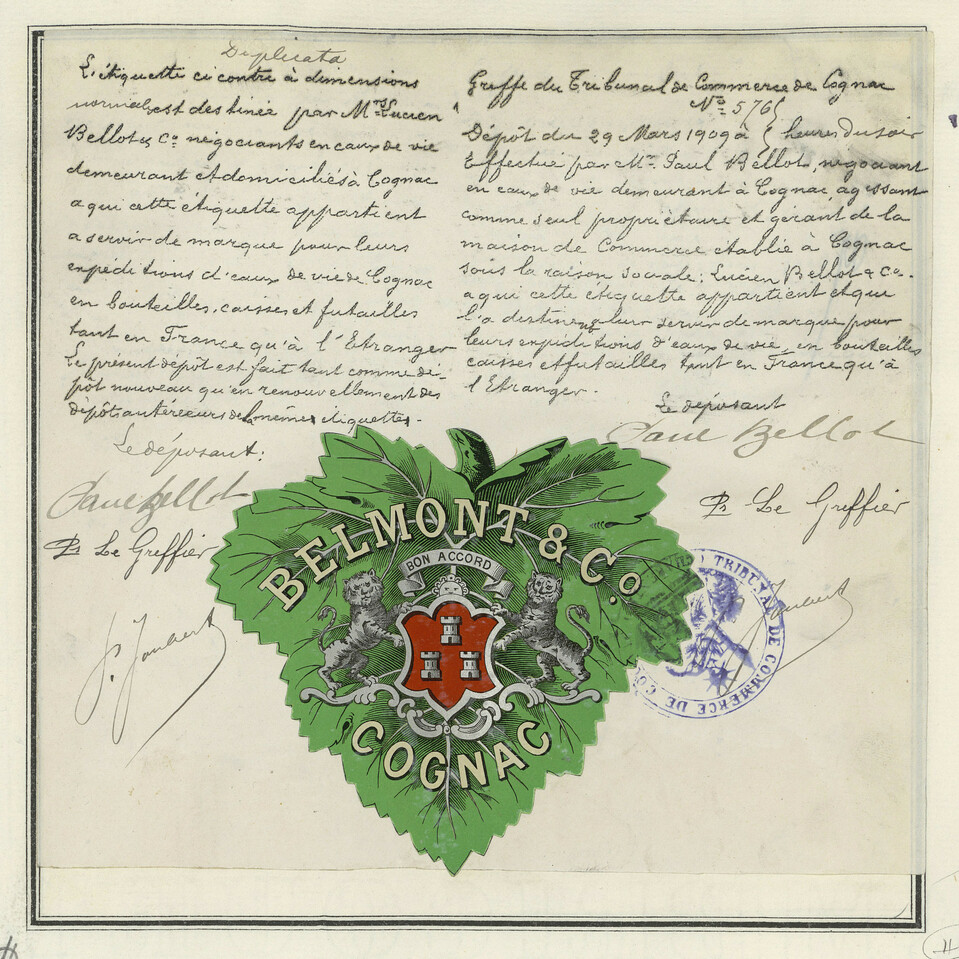 Duplicata
L'étiquette ci contre à dimensions
normales est destinée par Mrs Lucien
Bellot & Co négociants en eaux de vie
demeurant et domiciliés à Cognac
a qui cette étiquette appartient
a servir de marque pour leurs
expéditions d'eaux de vie de Cognac
en bouteilles, caisses et futailles
tant en France qu'à l'Etranger
Le présent dépôt est fait tant comme dé-
pôt nouveau qu'en renouvellement des
dépôts antérieurs de la même étiquette.
Le déposant:
Paul Bellot
Pr Le Greffier
J. Joubert
Greffe du Tribunal de Commerce de Cognac
No 576
Dépôt du 29 Mars 1909 à heures du soir
Effectué par Mr Paul Bellot, négociant
en eaux de vie demeurant à Cognac agissant
comme seul propriétaire et gérant de la
maison de Commerce établie à Cognac
sous la raison sociale: Lucien Bellot & Co.
a qui cette étiquette appartient et qui
l'a destine leur servir de marque pour
leurs expéditions d'eaux de vie, en bouteilles
caisses et futailles tant en France qu'à
l'Etranger.
Le déposant
Paul Bellot
Pr Le Greffier
Joubert
BELMONT & Co.
BON ACCORD
COGNAC
TRIBUNAL DE COMMERCE DE CO